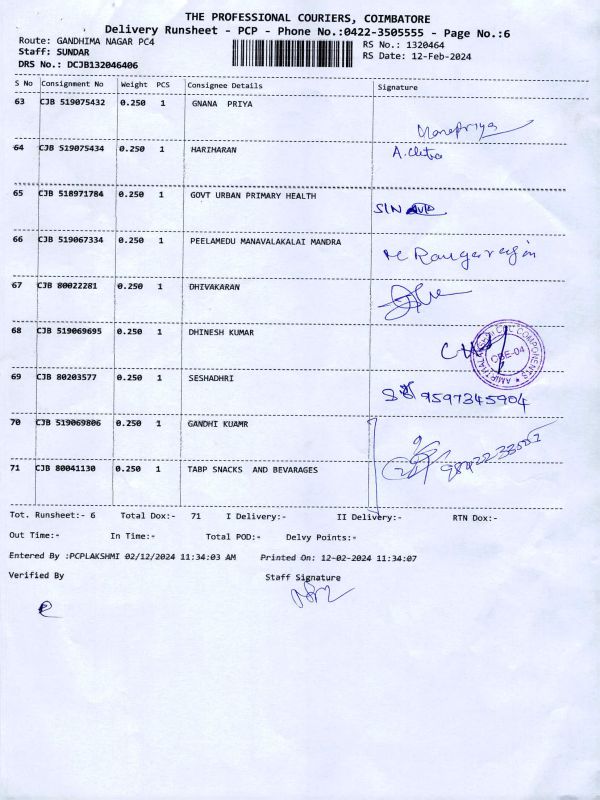 THE PROFESSIONAL COURIERS, COIMBATORE
Delivery Runsheet - PCP - Phone No.:0422-3505555 - Page No.:6
Route: GANDHIMA NAGAR PC4 RS No.: 1320464
Staff: SUNDAR RS Date: 12-Feb-2024
DRS No.: DCJB132046406
S No Consignment No Weight PCS Consignee Details Signature
63 CJB 519075432 0.250 1 GNANA PRIYA
64 CJB 519075434 0.250 1 HARIHARAN A.Chitra
65 CJB 518971784 0.250 1 GOVT URBAN PRIMARY HEALTH
66 CJB 519067334 0.250 1 PEELAMEDU MANAVALAKALAI MANDRA
67 CJB 80022281 0.250 1 DHIVAKARAN
68 CJB 519069695 0.250 1 DHINESH KUMAR CBE-04
69 CJB 80203577 0.250 1 SESHADHRI 9597345904
70 CJB 519069806 0.250 1 GANDHI KUAMR
71 CJB 80041130 0.250 1 TABP SNACKS AND BEVARAGES
Tot. Runsheet:- 6 Total Dox:- 71 I Delivery:- II Delivery:- RTN Dox:-
Out Time:- In Time:- Total POD:- Delvy Points:-
Entered By :PCPLAKSHMI 02/12/2024 11:34:03 AM Printed On: 12-02-2024 11:34:07
Verified By Staff Signature